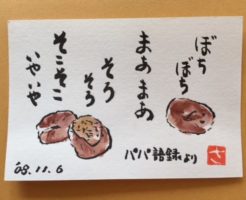 ぼち
ぼち
まあまあ
そう
そう
そこそこ
いやいや
パパ語録より
さ
'08.11.6